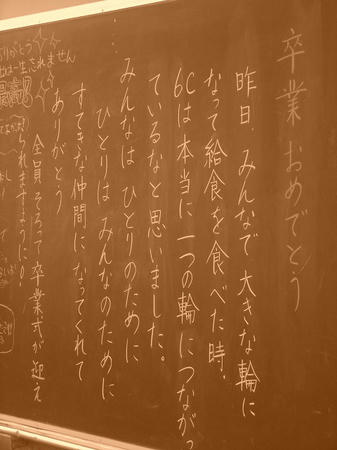 卒業おめでとう
昨日、みんなで大きな輪に
なって給食を食べた時、
6Cは本当に一つの輪につながっ
ているなと思いました。
みんなは ひとりのために
ひとりは みんなのために
すてきな仲間になってくれて
ありがとう
全員そろって卒業式が迎え
られますように!
ありがとう
は一生忘れません